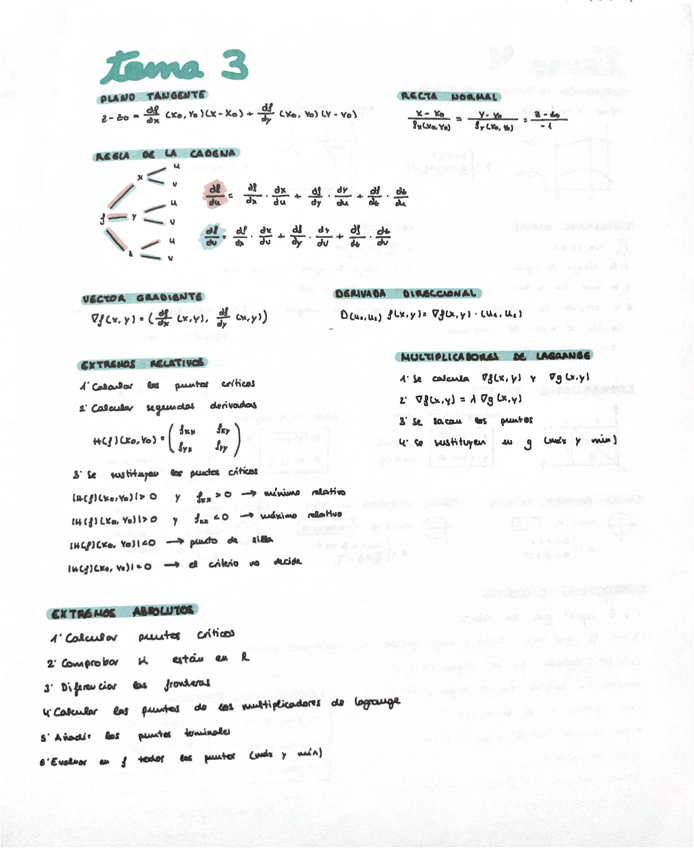 tema 3
PLANO TANGENTE
z - z0 = df/dx (x0, y0)(x - x0) + df/dy (x0, y0)(y - y0)
RECTA NORMAL
x - x0 / fx(x0, y0) = y - y0 / fy(x0, y0) = z - z0 / -1
REGLA DE LA CADENA
f x u v
y u v
u v
df/du = df/dx · dx/du + df/dy · dy/du + df/dt · dt/du
df/dv = df/dx · dx/dv + df/dy · dy/dv + df/dt · dt/dv
VECTOR GRADIENTE
∇f(x, y) = (df/dx (x, y), df/dy (x, y))
DERIVADA DIRECCIONAL
D(u1, u2) f(x, y) = ∇f(x, y) · (u1, u2)
EXTREMOS RELATIVOS
1· Calcular los puntos críticos
2· Calcular segundas derivadas
H(f)(x0, y0) = ( fxx fxy
fyx fyy )
3· Se sustituyen los puntos críticos
|H(f)(x0, y0)| > 0 y fxx > 0 → mínimo relativo
|H(f)(x0, y0)| > 0 y fxx < 0 → máximo relativo
|H(f)(x0, y0)| < 0 → punto de silla
|H(f)(x0, y0)| = 0 → el criterio no decide
MULTIPLICADORES DE LAGRANGE
1· Se calcula ∇f(x, y) y ∇g(x, y)
2· ∇f(x, y) = λ ∇g(x, y)
3· Se sacan los puntos
4· Se sustituyen en g (máx y mín)
EXTREMOS ABSOLUTOS
1· Calcular puntos críticos
2· Comprobar si están en R
3· Diferenciar las fronteras
4· Calcular los puntos de los multiplicadores de lagrange
5· Añadir los puntos terminales
6· Evaluar en f todos los puntos (máx y mín)